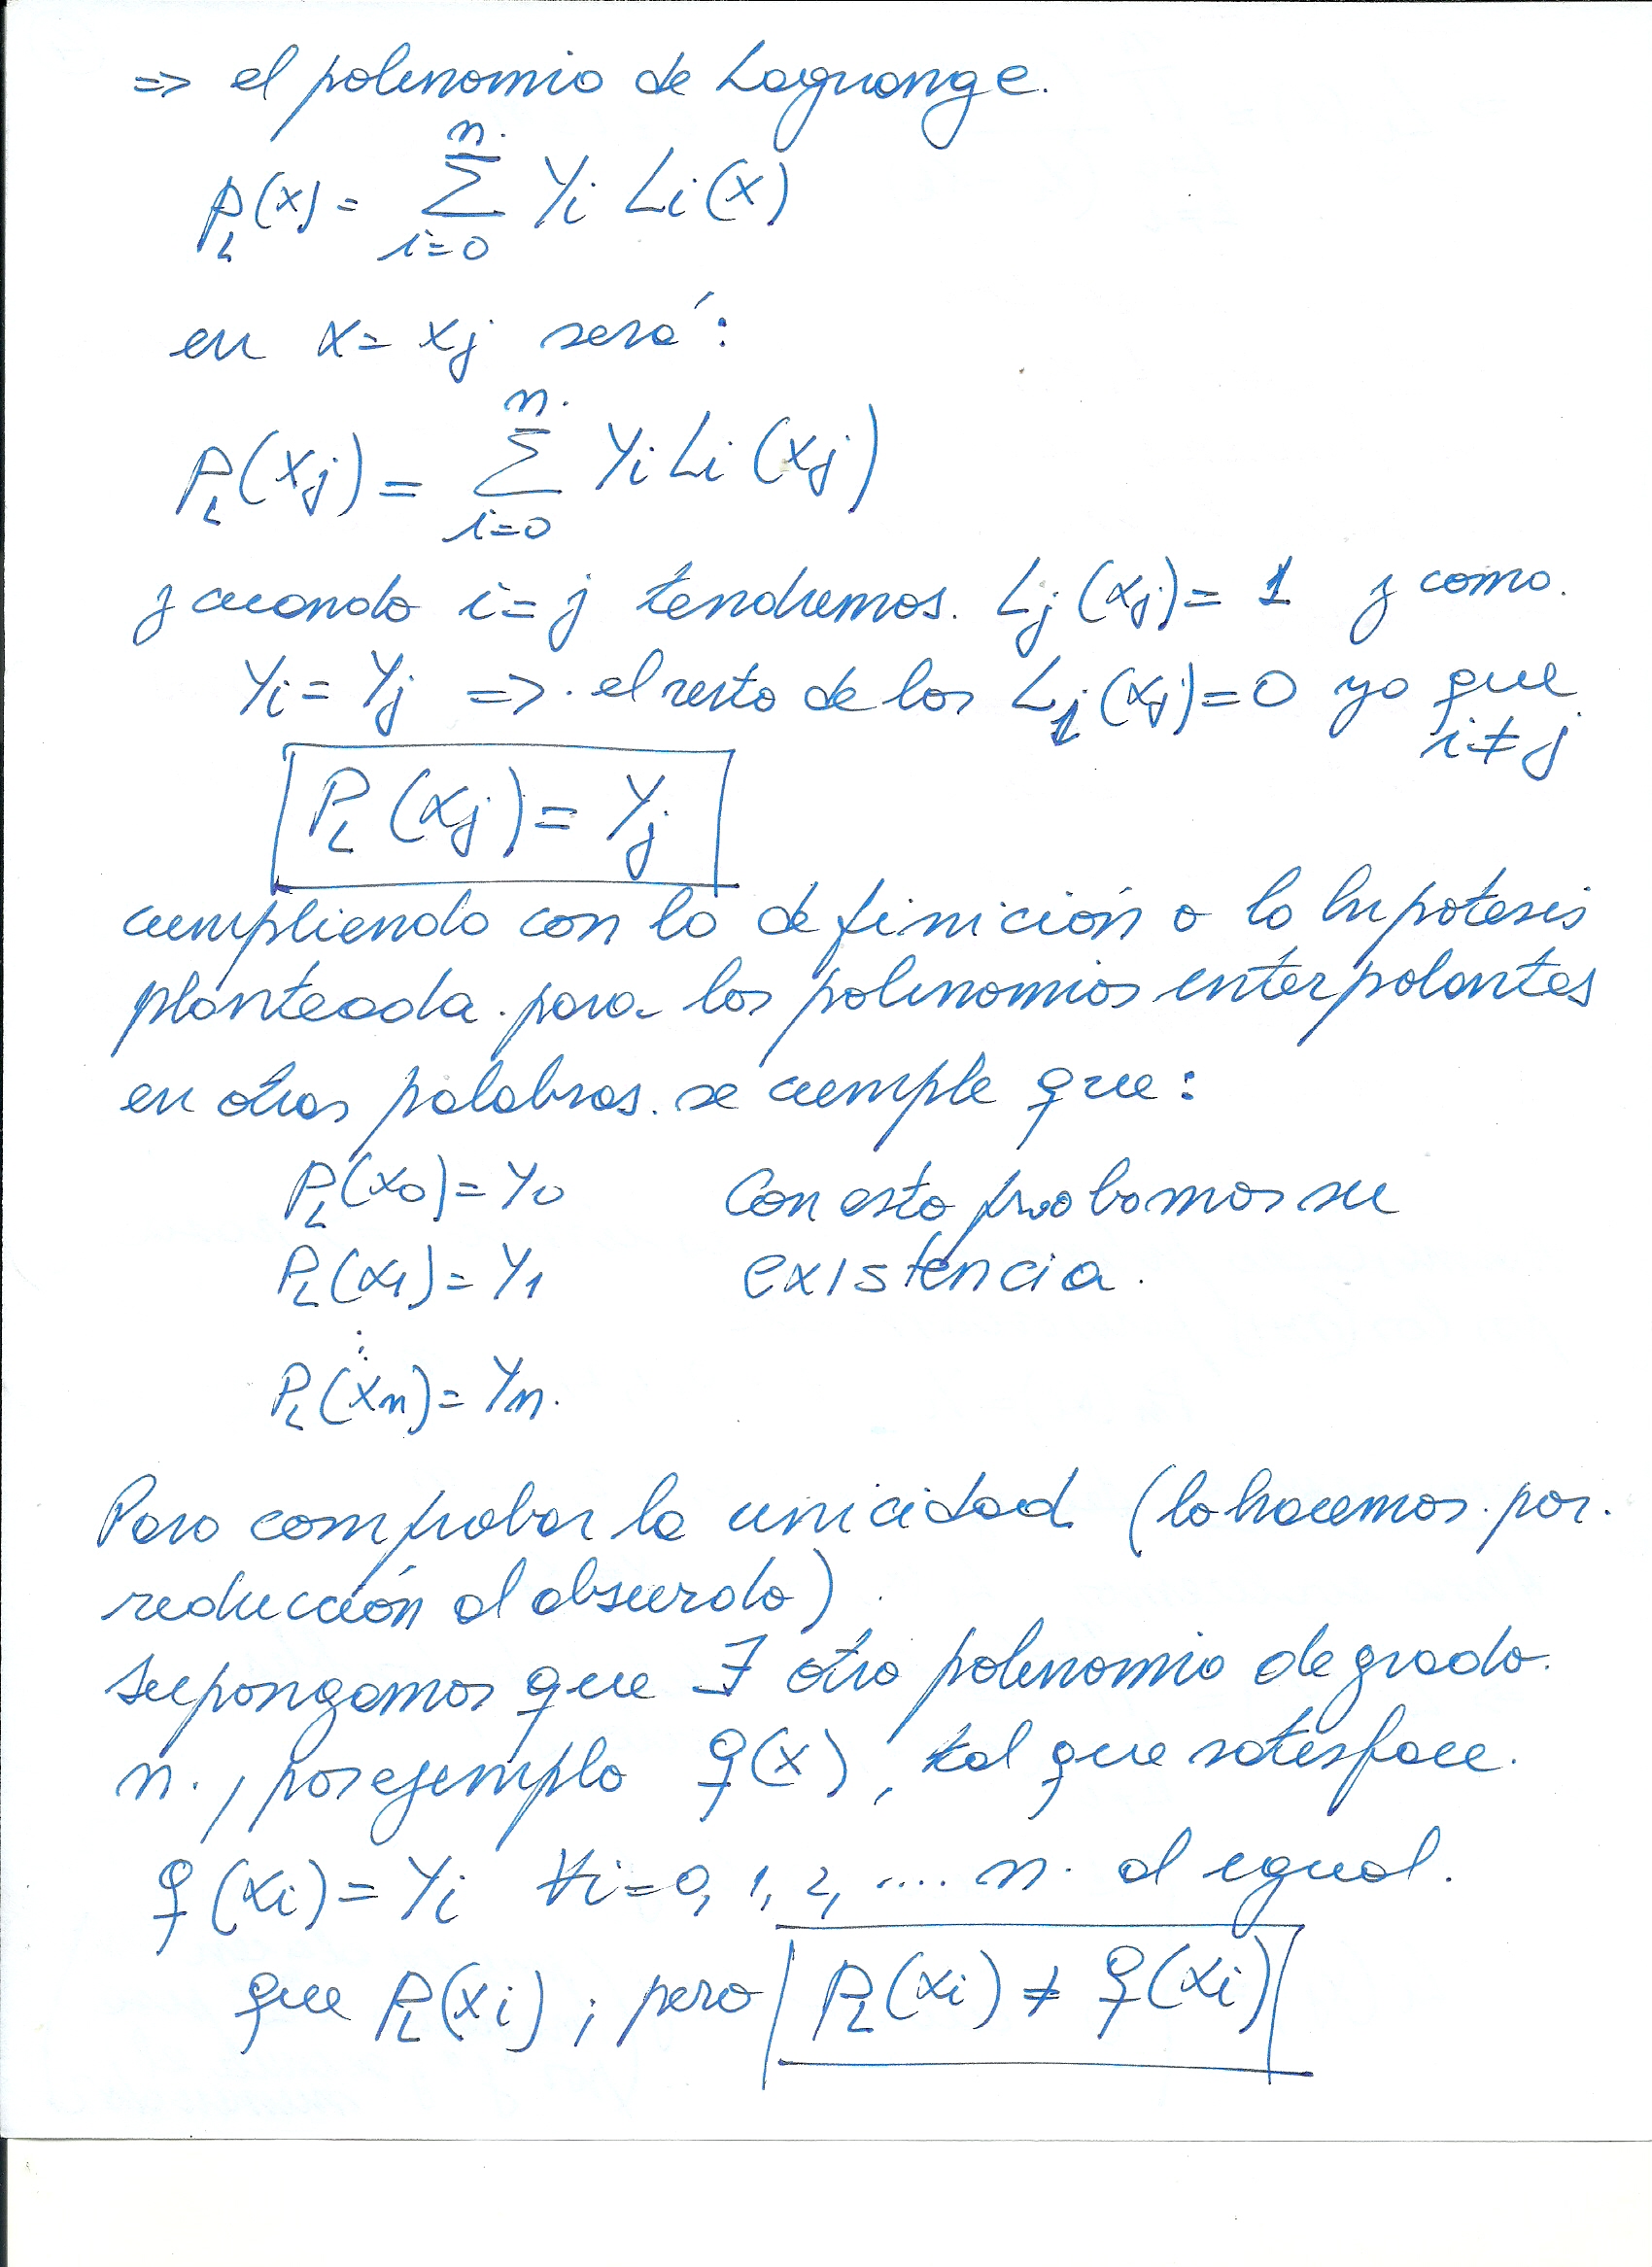 => el polinomio de Lagrange.
P_L(x) = ∑_{i=0}^{n} Yi Li(x)
en x = xj será:
P_L(xj) = ∑_{i=0}^{n} Yi Li(xj)
y cuando i=j tendremos. Lj(xj) = 1 y como.
Yi = Yj => . el resto de los Li(xj) = 0 ya que
i ≠ j
P_L(xj) = Yj
cumpliendo con la definición o la hipotesis
planteada para los polinomios interpolantes
en otras palabras se cumple que:
P_L(x0) = Y0 Con esto probamos su
P_L(x1) = Y1 existencia.
⋮
P_L(xn) = Yn.
Para comprobar la unicidad (lo hacemos por.
reducción al absurdo)
supongamos que ∃ otro polinomio de grado.
n., por ejemplo q(x), tal que satisface.
q(xi) = Yi ∀i=0, 1, 2, .... n. al igual.
que P_L(xi); pero P_L(xi) ≠ q(xi)